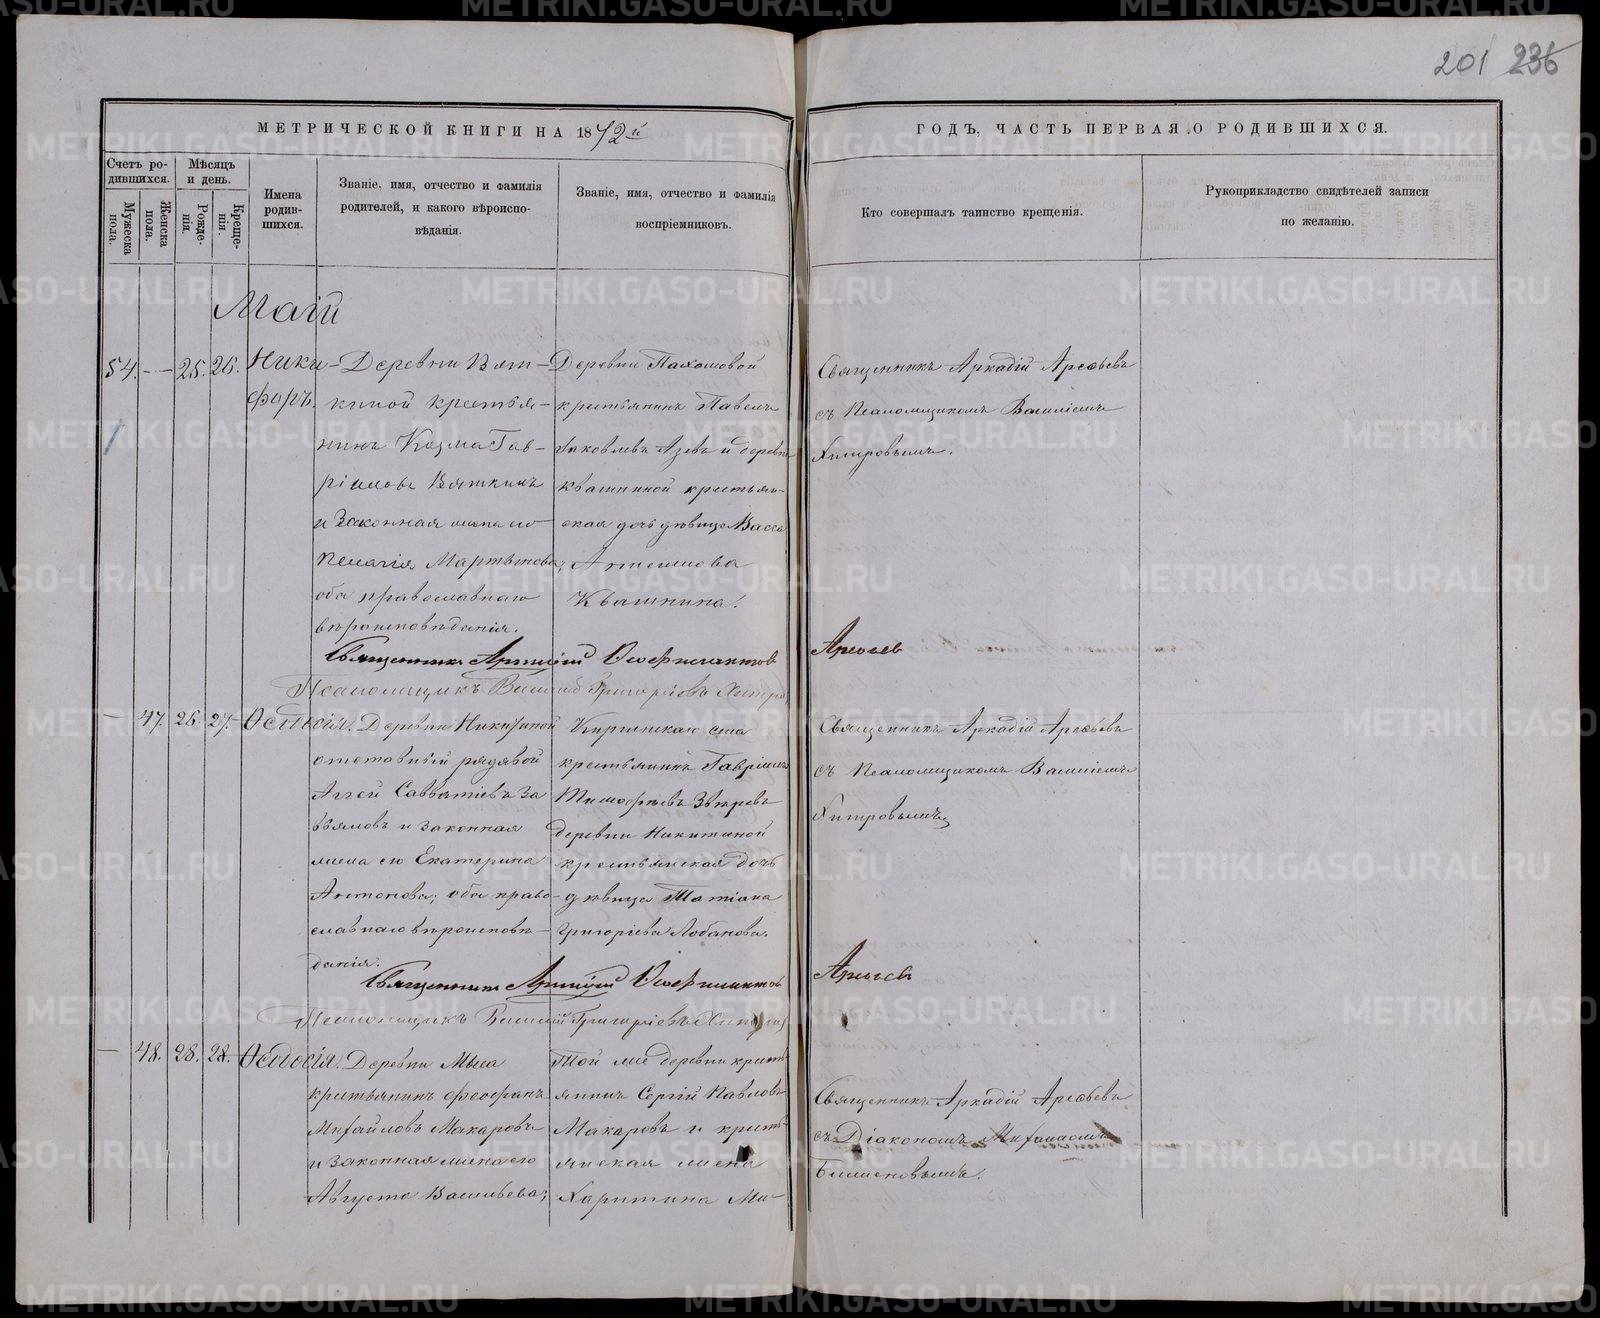 201 236
МЕТРИЧЕСКОЙ КНИГИ НА 1872й
ГОДЪ, ЧАСТЬ ПЕРВАЯ О РОДИВШИХСЯ.
Счетъ ро-
дившихся.
Мужеска
пола.
Женска
пола.
Мѣсяцъ
и день.
Рожде-
нія.
Креще-
нія.
Имена
родив-
шихся.
Званіе, имя, отчество и фамилія
родителей, и какого вѣроиспо-
вѣданія.
Званіе, имя, отчество и фамилія
воспріемниковъ.
Кто совершалъ таинство крещенія.
Рукоприкладство свидѣтелей записи
по желанію.
Маій
54. - - 25. 26.
Ники-
форъ.
Деревни Вят-
киной крестья-
нинъ Козма Гав-
ріиловъ Вяткинъ
и законная жена его
Пелагія Мартынова;
оба православнаго
вѣроисповѣданія.
Деревни Пахомовой
крестьянинъ Павелъ
Яковлевъ Азевъ и деревни
Квашниной крестьян-
ская дочь дѣвица Васса
Антонова
Квашнина.
Священникъ Аркадій Арефьевъ
съ Псаломщикомъ Василіемъ
Хитровымъ.
Священникъ Аркадій Арефьев
Псаломщикъ Василій Григоріевъ Хитро
— 47. 26. 27.
Деревни Никитиной
отставный рядовой
Аггей Савватіевъ За
вьяловъ и законная
жена его Екатерина
Антонова; оба право-
славнаго вѣроисповѣ-
данія.
села
крестьянинъ Гавріилъ
Тимофѣевъ Звѣревъ
деревни Никитиной
крестьянская дочь
дѣвица Татіана
Григоріева Лобанова.
Священникъ Аркадій Арефьевъ
съ Псаломщикомъ Василіемъ
Хитровымъ
Священникъ
Псаломщикъ Василій Григоріевъ
— 48. 28. 28.
Ѳеодосія. Деревни Мыса
крестьянинъ Феофанъ
Михайловъ Макаровъ
и законная жена его
Августа Васильева;
Той же деревни кресть-
янинъ Сергій Павловъ
Макаровъ и кресть-
янская жена
Харитина Ми-
Священникъ Аркадій Арефьевъ
съ Діакономъ Михаиломъ
METRIKI.GASO-URAL.RU